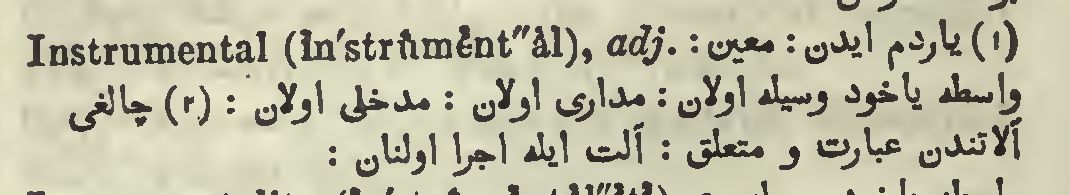 Instrumental (ĭn'strŭmĕnt"ăl), adj. (١) ياردم ايدن : معين :
واسطه ياخود وسيله اولان : مدارى اولان : مدخلى اولان : (٢) چالغى
آلاتندن عبارت و متعلق : آلت ايله اجرا اولنان :